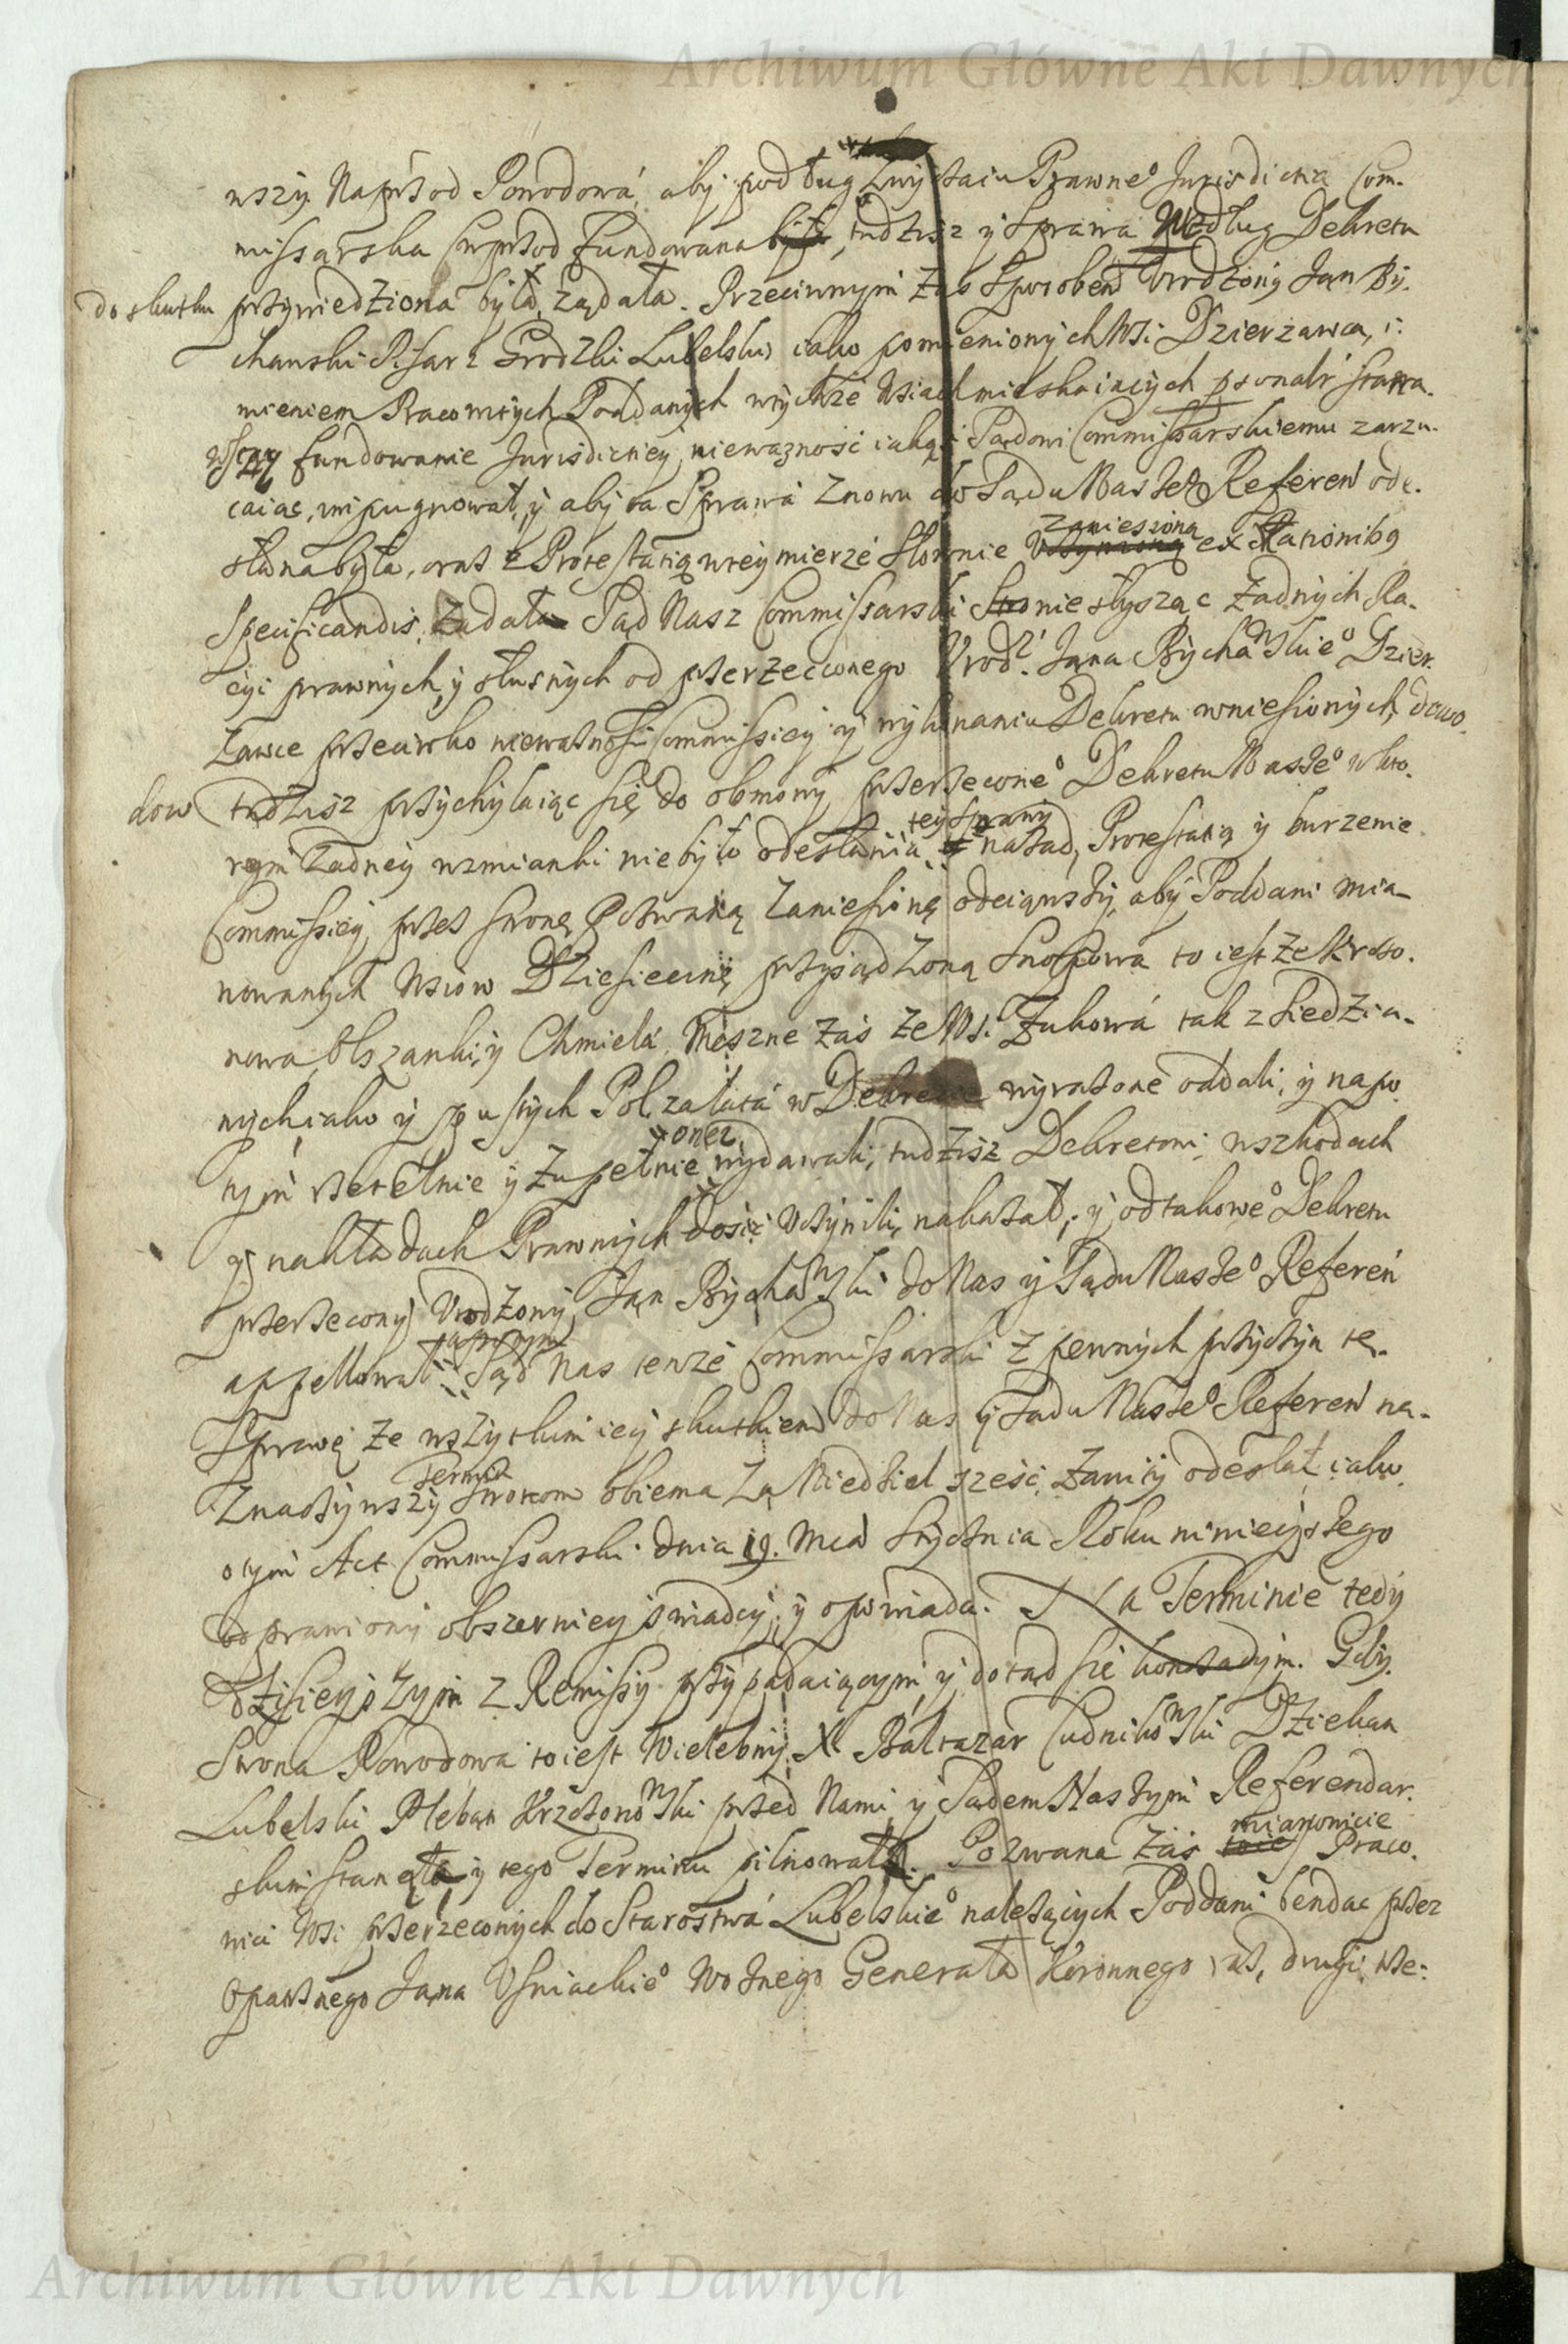 Archiwum Główne Akt Dawnych
wszy. Naprzod Powodowá, aby podług Zwyczaiu Prawneº Jurisdictia Com-
missarska Fundowana, tudzisz y Sprawa Według Dekretu
do skutku przywiedziona była, ządała. Przeciwnym Zas Sposobem Vrodzony Jan By-
chawski Pisarz Grodzki Lubelski, iako pomienionych Wsi Dzierzawca, i:
mieniem Pracowitych Poddanych wtychze Wsiach mieszkaiących psonalr stawa-
fundowanie Jurisdictiey, niewazność iakąś Sądowi Commissarskiemu zarzu-
caiąc, impugnował, y aby ta Sprawa Znowu do Sądu Naszeº Referen ode-
słana była, oraz z Protestatią wtey mierze Słownie zaniesioną ex Rationibq
Specificandis, Ządał. Sąd Nasz Commissarski nie słysząc Zadnych Ra-
cyi prawnych, y słusznych od przerzeczonego Vrodz: Jana Bychawskieº Dzier-
zawce przeciwko niewaznosci Commissiey y wykonaniu Dekretu wniesionych, dowo-
dow tudzisz przychylaiąc się do obmowy przerzeconeº Dekretu Naszeº wkto-
rym Zadney wzmianki nie było odesłania tey sprawy nazad, Protestatią y burzenie
Commissiey przez stronę Pozwaną Zaniesioną odciąwszy, aby Poddani mia-
nowanych Wsiow Dziesiecinę przysądzoną Snopową to iest ze Krzczo-
nowa, Olszanki, y Chmiela, Meszne zas ze Wsi Zukowá tak z Siedzia-
nych iako y pustych Pol zalatá w Dekrecie wyrazone oddali, y napo-
tym rzetelnie y Zupełnie onez wydawali, tudzisz Dekretowi, wszkodach
y nakładach Prawnych dosić Vczynili, nakazał, y od takoweº Dekretu
przerzecony Vrodzony Jan Bychawski do Nas y Sądu Naszeº Referen
appellował: Sąd Nas tenze Commissarski z pewnych przyczyn tę
Sprawę ze wszytkim iey skutkiem do Nas y Sądu Naszeº Referen na-
Znaczywszy Termin Stronom obiema Za Niedziel sześć, Zawity odesłał, iako
otym Act Commissarski dnia 19. Mca Stycznia Roku ninieyszego
odprawiony obszerniey świadczy, y opowiada. Na Terminie tedy
dzisieyszym z Remissy przypadaiącym, y dotąd się. Gdy
Strona Powodowa to iest Wielebny X. Baltazar Cudnikowski Dziekan
Lubelski Pleban Krzczonowski przed Nami y Sądem Naszym Referendar-
skim y tego Terminu pilnował. Pozwana Zas mianowicie Praco-
wici Wsi przerzeconych do Starostwá Lubelskieº nalezących Poddani bendąc przez
Opatrznego Jana Vsniackieº Woznego Generała Koronnego, raz, drugi, trze-
Archiwum Główne Akt Dawnych